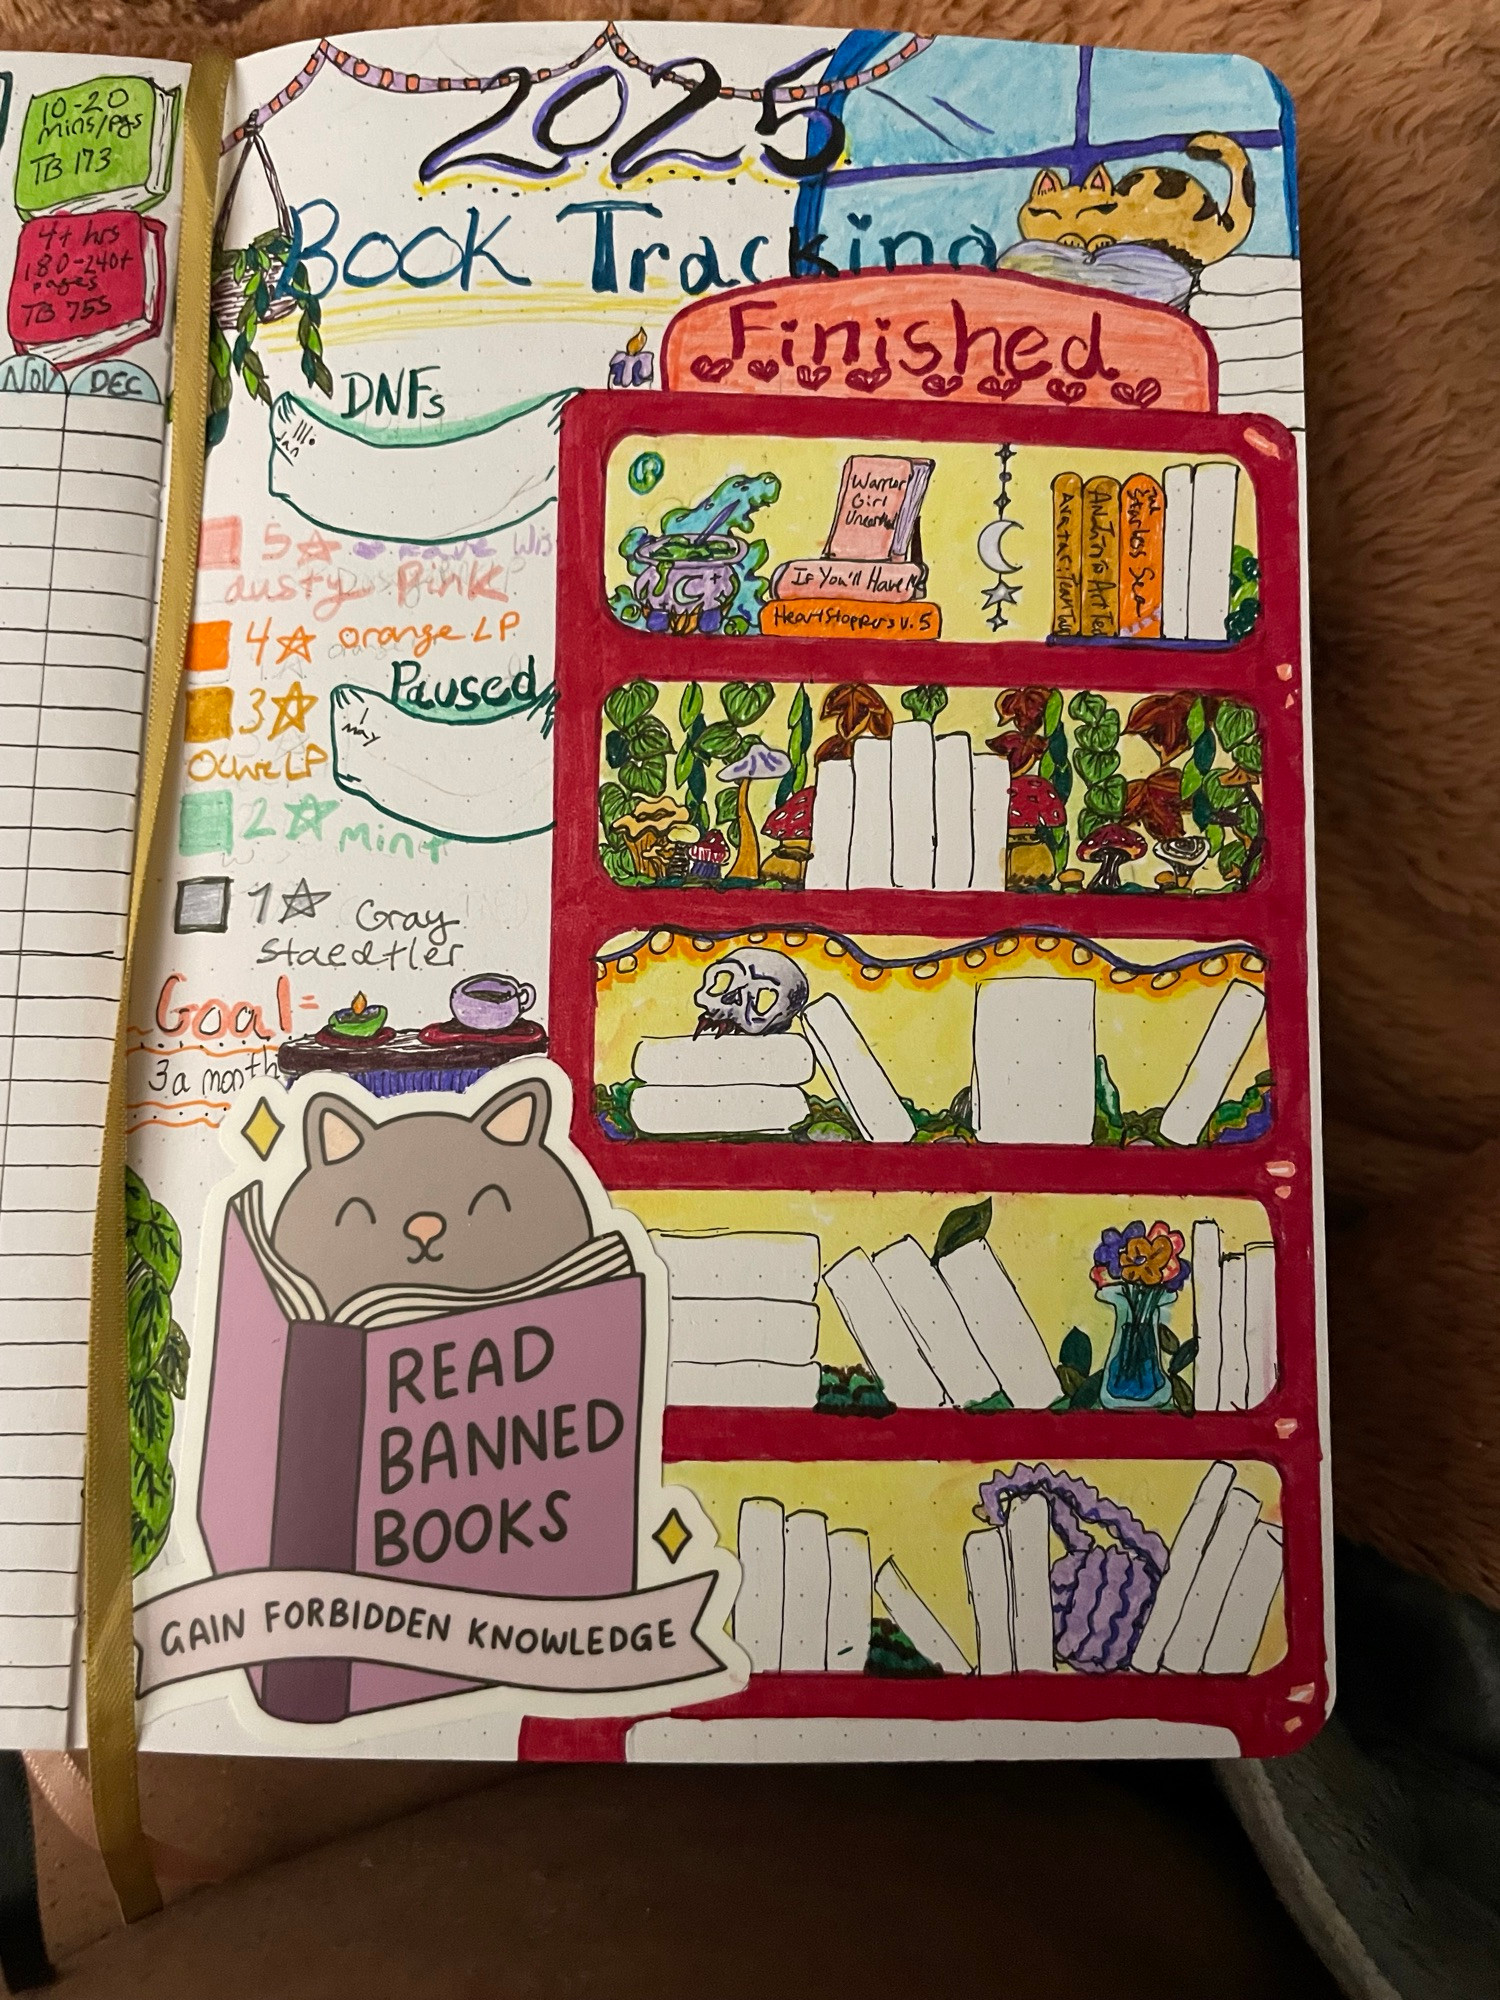 10-20
mins/pgs
TB 173
4+ hrs
180-240+
pages
TB 755
NOV DEC
2025
Book Tracking
Finished
DNFs
Jan
5☆
dusty Pink
4☆ orange LP
3☆
Olive LP
2☆ Mint
1☆ Gray
Staedtler
Paused
1
May
Goal=
3 a month
Warrior
Girl
Unearthed
If You'll Have Me
HeartStoppers v. 5
Starless Sea
READ
BANNED
BOOKS
GAIN FORBIDDEN KNOWLEDGE